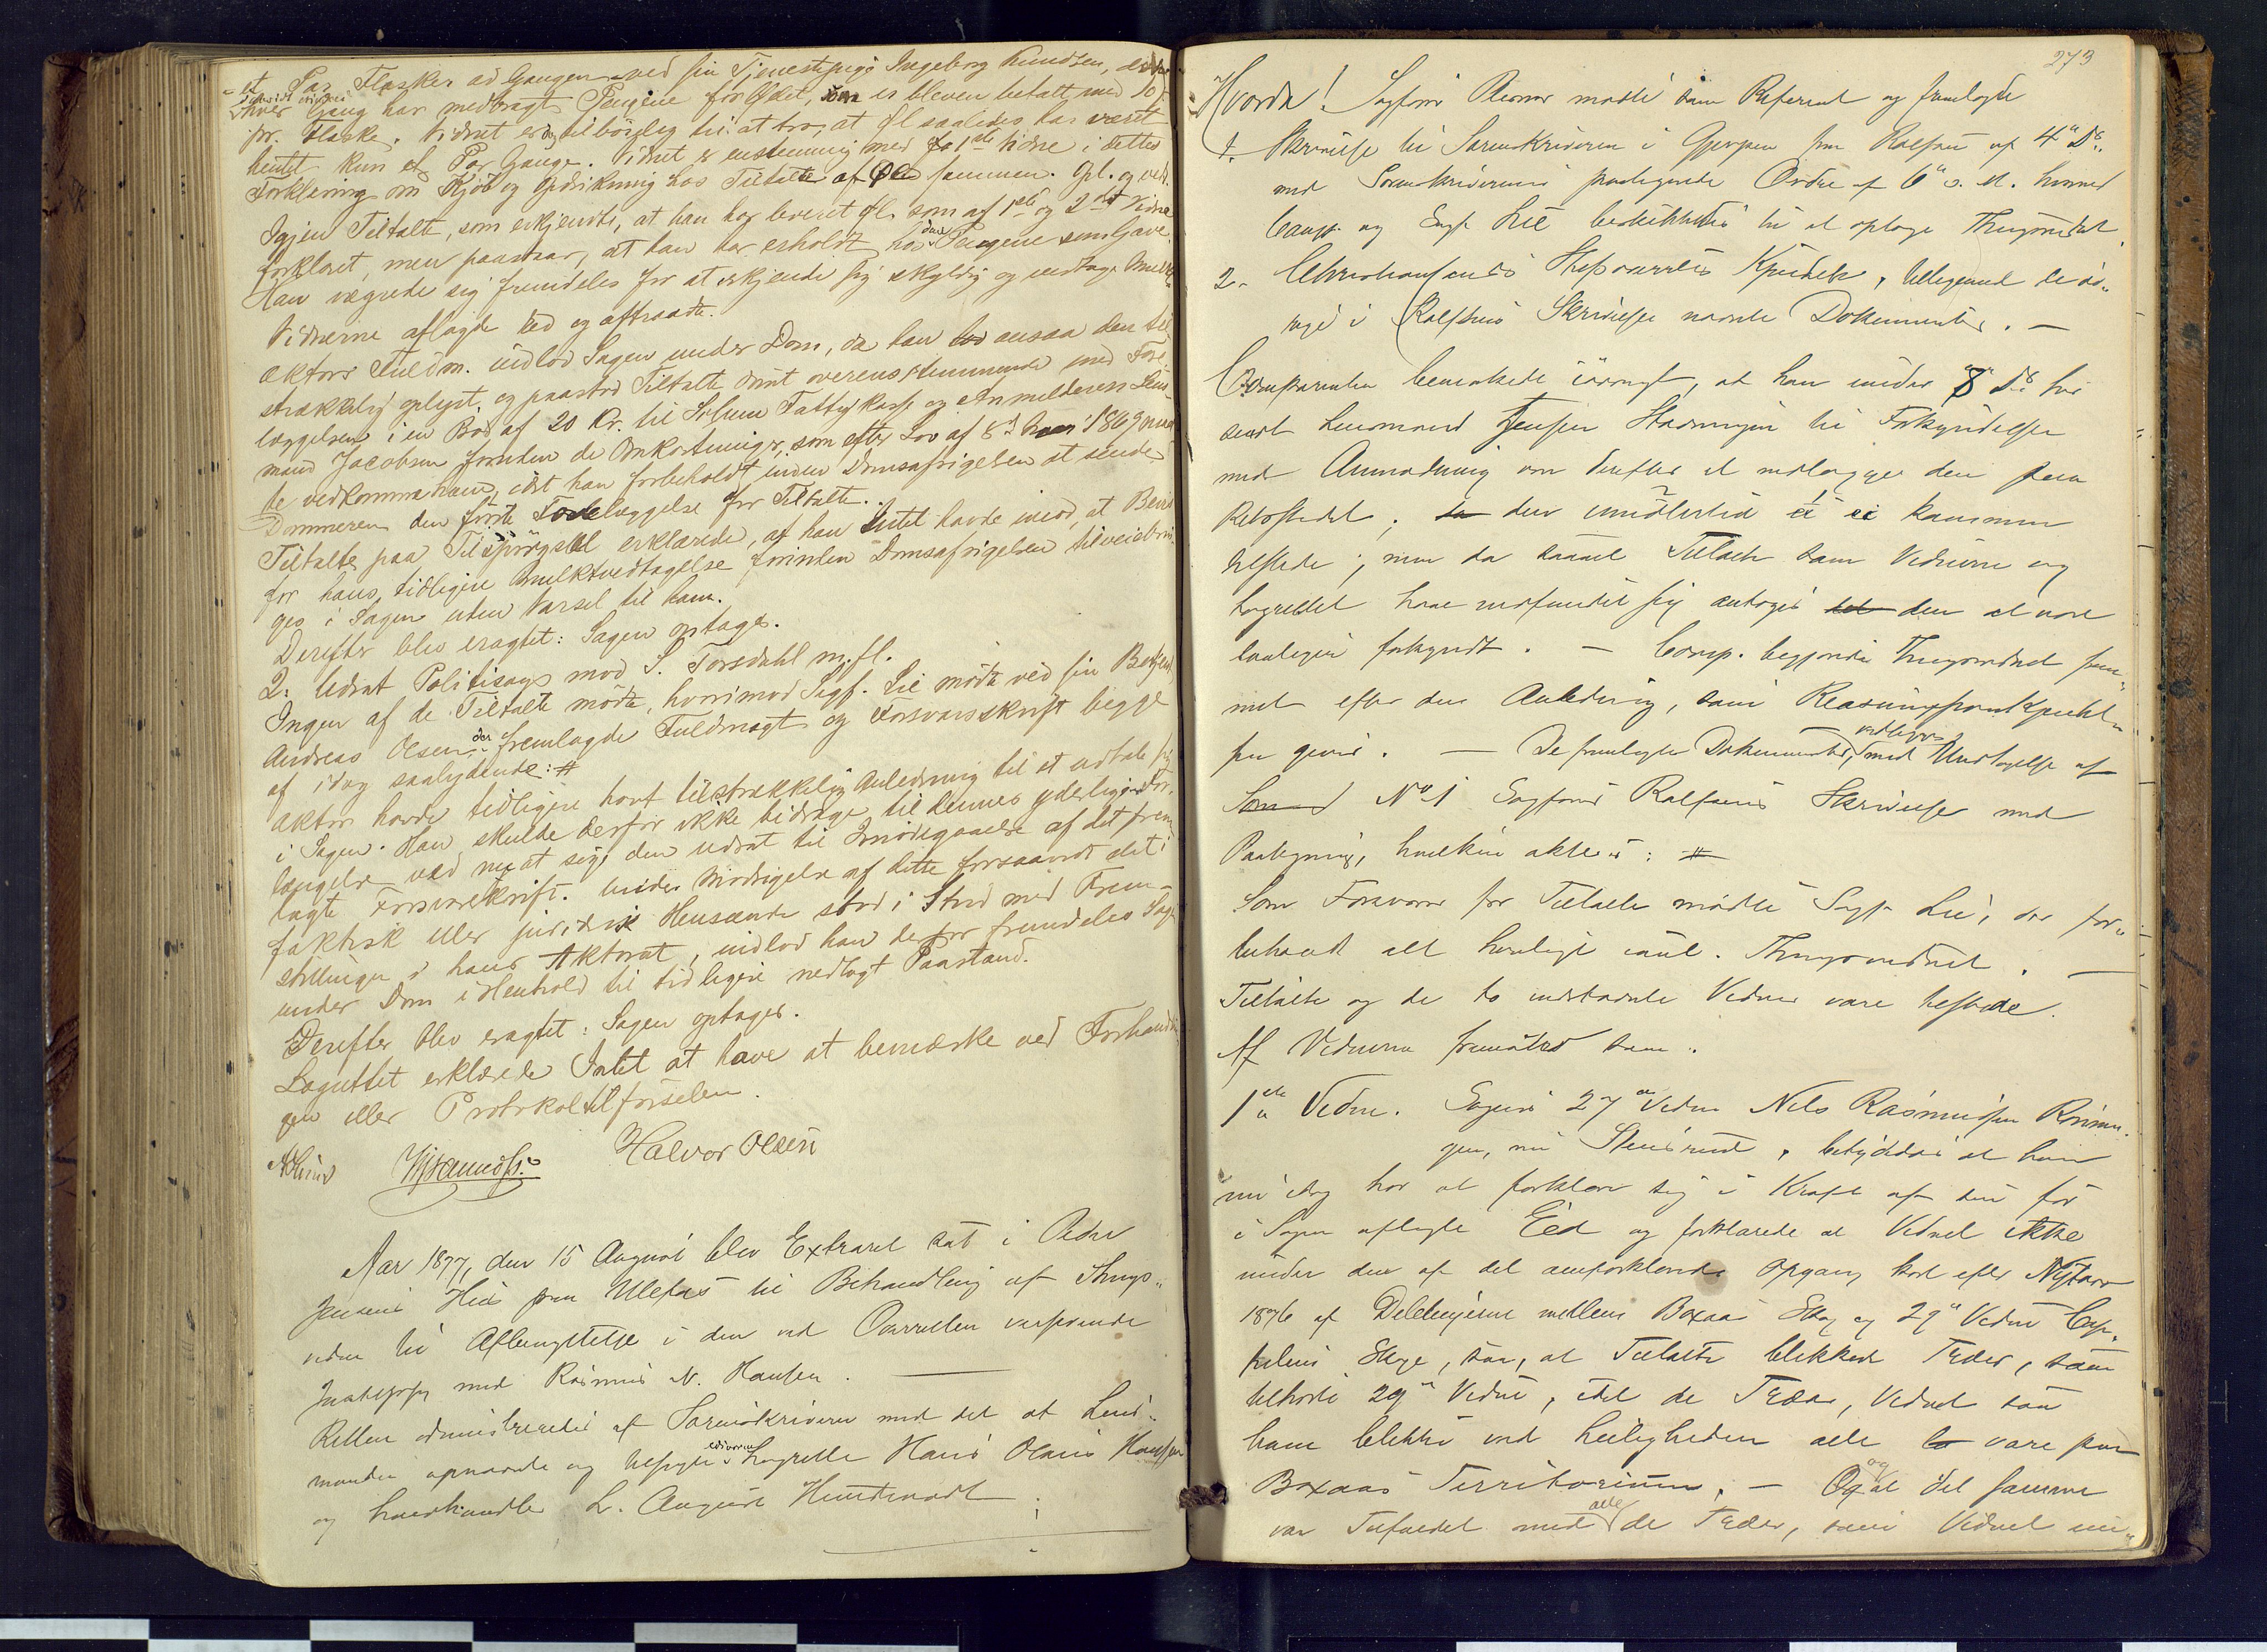 et Par Flasker ad Gangen ved sin Tjenestepige Ingeborg Knudsen, der
hver Gang har medbragt Pengene for Øllet, som er bleven betalt med 10
pr. Flaske. Vidnet er tilbøielig til at tro, at Øl saaledes har været
hentet kun et Par Gange. Vidnet er enstemmig med 1ste Vidne i dettes
Forklaring om Kjøb og Opdrikning hos Tiltalte af Øl sammen. Opl. og vedt.
Igjen Tiltalte, som erkjendte, at han har leveret Øl, som af 1ste og 2det Vidne
forklaret, men paastaar, at han har erholdt Pengene som Gave.
Han vægrede sig fremdeles for at erkjende sig skyldig og vedtage Mulkt.
Vidnerne aflagde Ed og aftraadte.
Aktors Fuldm. indlod Sagen under Dom, da han ansaa den til
strækkelig oplyst, og paastod Tiltalte dømt overensstemmende med Fore
læggelsen i en Bod af 20 Kr. til Solum Fattigkasse og Anmelderen Lens
mand Jacobsen foruden de Omkostninger, som efter Lov af 1869 maa
te vedkomme ham, idet han forbeholdt inden Domsafsigelsen at sende
Dommeren den første Forelæggelse for Tiltalte.
Tiltalte paa Tilspørgsel erklærede, at han Intet havde imod, at Bevis
for hans tidligere Mulktvedtagelse forinden Domsafsigelsen tilveiebrin
ges i Sagen uden Varsel til ham.
Derefter blev eragtet: Sagen optages.
2. Udsat Politisag mod S. Torsdahl m.fl.
Ingen af de Tiltalte mødte, hvorimod Sagf. Lie mødte ved sin
Andreas Olsen, der fremlagde Fuldmagt og Forsvarsskrift begge
af idag saalydende: #
Aktor havde tidligere havt tilstrækkelig Anledning til at udtale sig
i Sagen. Han skulde derfor ikke bidrage til dennes yderligere For
længelse ved nu at søge den udsat til Imødegaaelse af det frem
lagte Forsvarsskrift. Under Modsigelse af dette forsaavidt det i
faktisk eller juridisk Henseende stod i Strid med Frem-
stillingen i hans Aktorat, indlod han derfor fremdeles Sagen
under Dom i Henhold til tidligere nedlagt Paastand.
Derefter blev eragtet: Sagen optages.
Lagrettet erklærede Intet at have at bemærke ved Forhandlin
gen eller Protokoltilførselen.
Halvor Olsen
Aar 1877, den 15 August blev Extraret sat i Peder
Jensens Hus paa Ulefos til Behandling af Things-
vidne til Afbenyttelse i den ved Overretten verserende
Justitssag mod Rasmus N. Hansen.
Retten administreredes af Sorenskriveren med det af Lens-
manden opnævnte og tilsagte Lagrette Hans Olaus Hansen
og Landhandler L. August
273
Hvorda! Sagfører mødte som Referent og fremlagde
1. Skrivelse til Sorenskriveren i Gjerpen fra Rolfsen af 4de Ds.
med Sorenskriverens paategnede Ordre af 6te s. M. hvorved
Comp. og Sagf. Lie beskikkedes til at optage Thingsvidnet
2. Christianssands Stiftsoverrets Kjendelse, tilligemed de øv-
rige i Rolfsens Skrivelse nævnte Dokumenter. —
Comparenten bemærkede iøvrigt, at han under 8de Ds. har
sendt Lensmand Jensen Stævningen til Forkyndelse
med Anmodning om derefter at medbringe den paa
Retsstedet; den imidlertid ei kommen
tilstede; men da saavel Tiltalte som Vidnerne og
Lagrettet have indfundet sig antages den at være
lovligen forkyndt. — Comp. begjærede Thingsvidnet frem-
met efter den Anledning, som Reassumptionskjendel-
sen giver. — De fremlagte Dokumenter vedlægges, med Undtagelse af
No 1 Sagfører Rolfsens Skrivelse med
Paategning, hvilken akteres: #
Som Forsvarer for Tiltalte mødte Sagf. Lie, der for-
beholdt alt lovligt imod Thingsvidnet. —
Tiltalte og de to indstævnte Vidner vare tilstede.
Af Vidnerne fremstod som:
1ste Vidne. Sagens 27de Vidne Nels Rasmussen
gen, nu Stensrud, betyddes at han
nu idag har at forklare sig i Kraft af sin før
i Sagen aflagte Eed og forklarede at Vidnet ikke
under den af det omforklarede Opgang kort efter Nytaar
1876 af Delelinjerne mellem Boxaas Skog og 29de Vidne Cap-
pelens Skoge, saa, at Tiltalte blikkede Træer, som
tilhørte 29de Vidne, idet de Træer, Vidnet saa
ham blikke ved Leiligheden alle vare paa
Boxaas Territorium. — Og at det samme
var Tilfældet med alle de Træer, som Vidnet un-